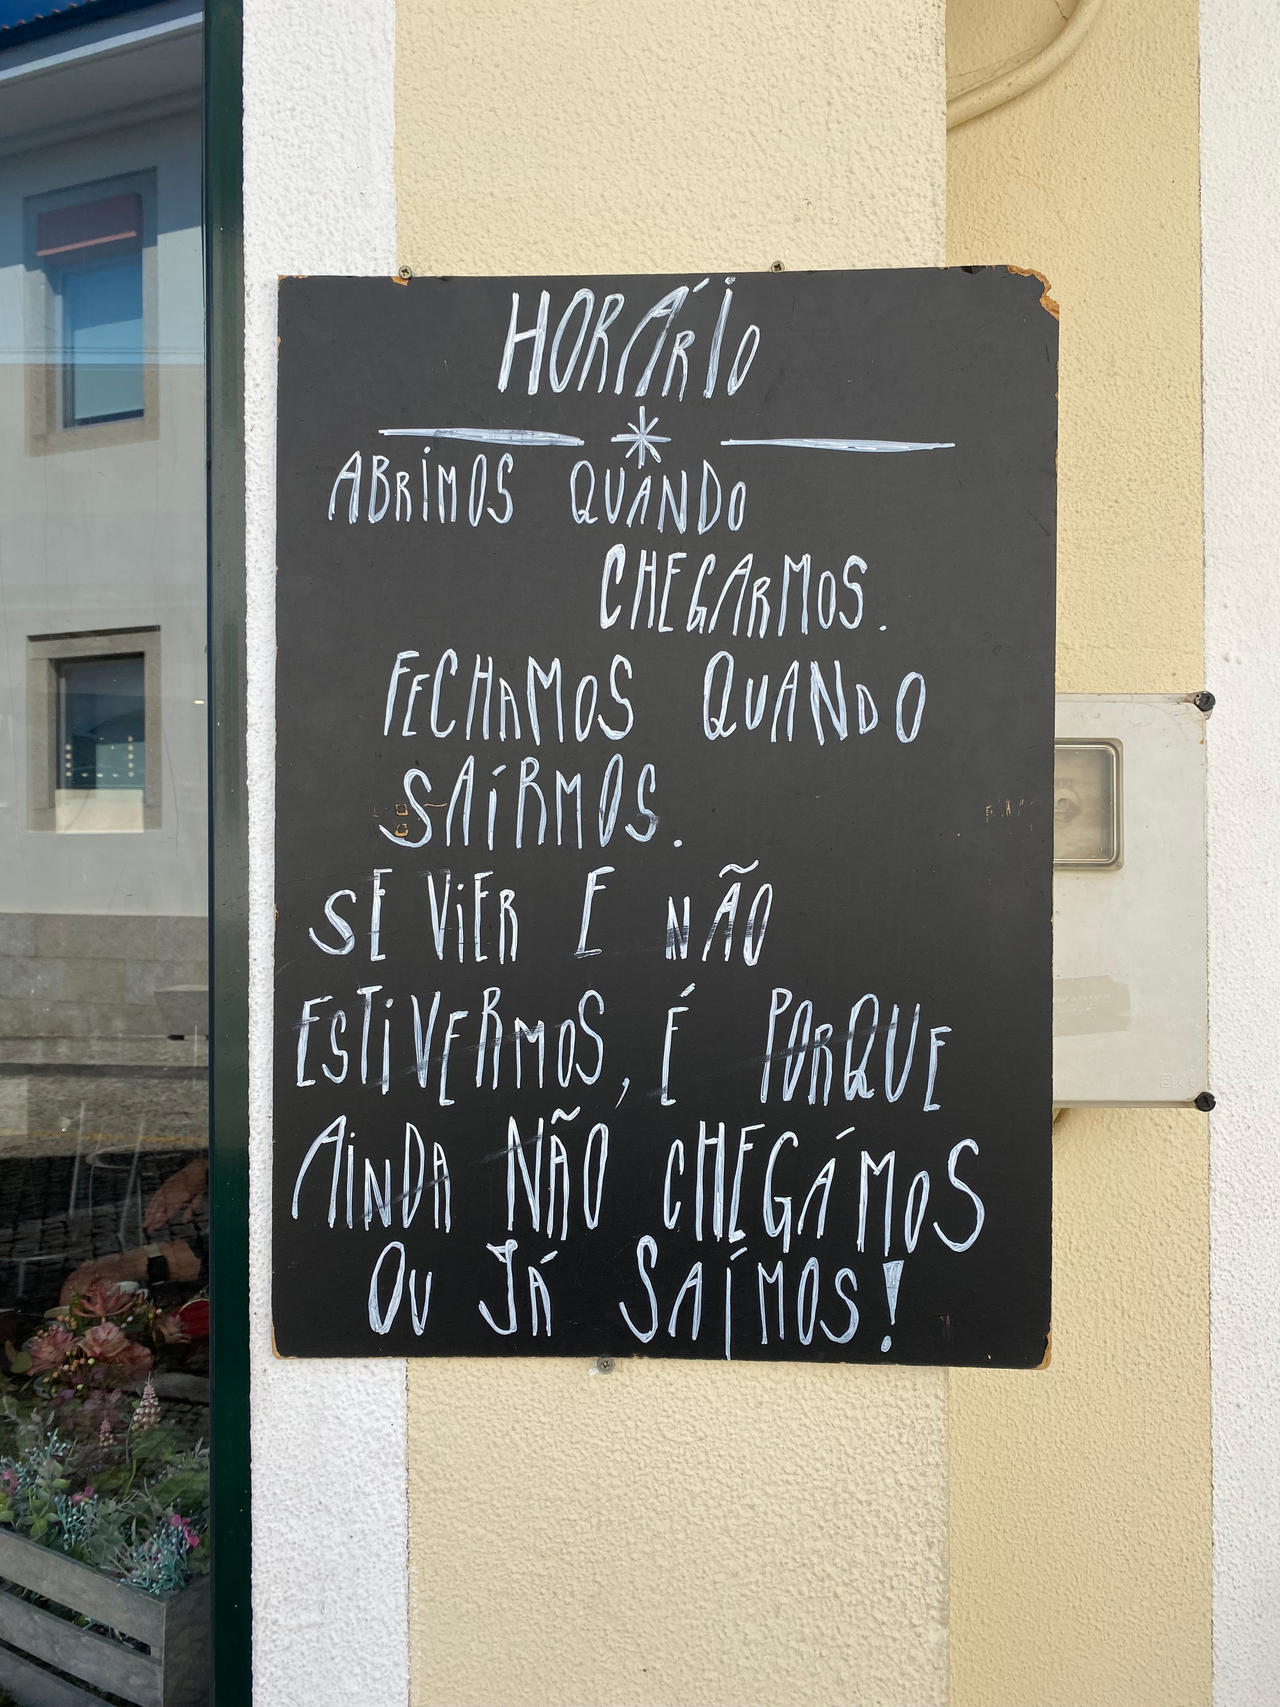 HORÁRIO
ABRIMOS QUANDO
CHEGARMOS.
FECHAMOS QUANDO
SAÍRMOS.
SE VIER E NÃO
ESTIVERMOS, É PORQUE
AINDA NÃO CHEGÁMOS
OU JÁ SAÍMOS!